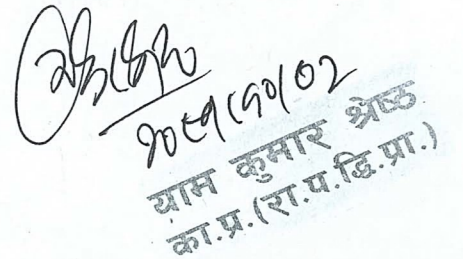 २०८१।१०।०२
याम कुमार श्रेष्ठ
का.प्र.(रा.प.द्वि.प्रा.)